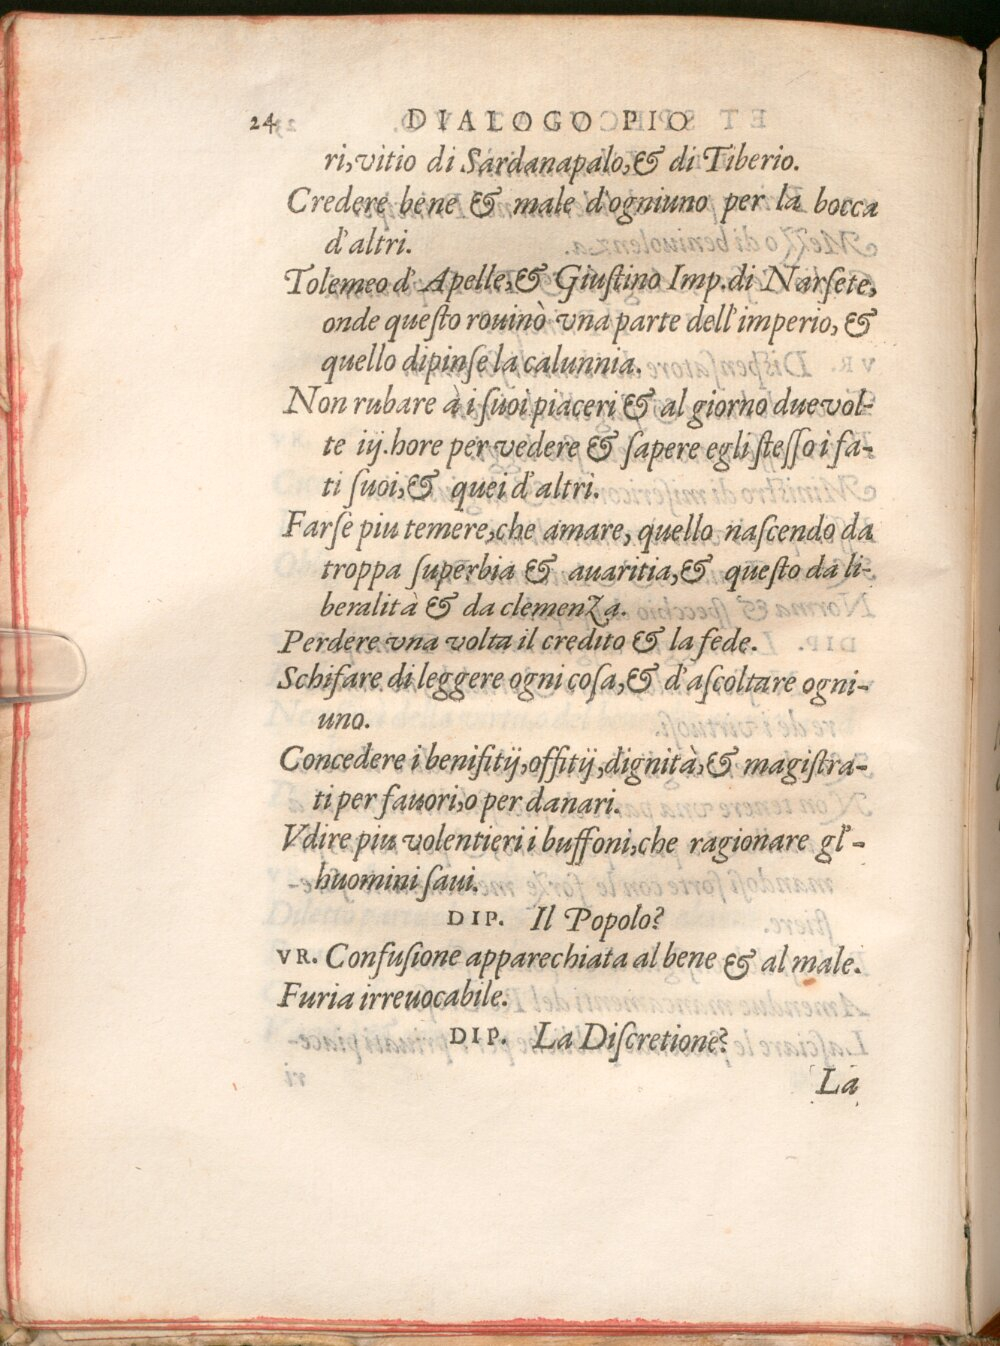 24 DIALOGO PIO
ri, vitio di Sardanapalo, & di Tiberio.
Credere bene & male d'ogniuno per la bocca
d'altri.
Tolemeo d' Apelle, & Giuſtino Imp. di Narſete,
onde queſto rouinò vna parte dell'imperio, &
quello dipinſe la calunnia.
Non rubare à i ſuoi piaceri & al giorno due vol-
te iij. hore per vedere & ſapere egli ſteſſo i fa-
ti ſuoi, & quei d'altri.
Farſe piu temere, che amare, quello naſcendo da
troppa ſuperbia & auaritia, & queſto da li-
beralità & da clemenza.
Perdere vna volta il credito & la fede.
Schifare di leggere ogni coſa, & d'aſcoltare ogni-
uno.
Concedere i benifitij, offitij, dignità, & magiſtra-
ti per fauori, o per danari.
Vdire piu volentieri i buffoni, che ragionare gl'-
huomini ſaui.
DIP. Il Popolo?
VR. Confuſione apparechiata al bene & al male.
Furia irreuocabile.
DIP. La Diſcretione?
La